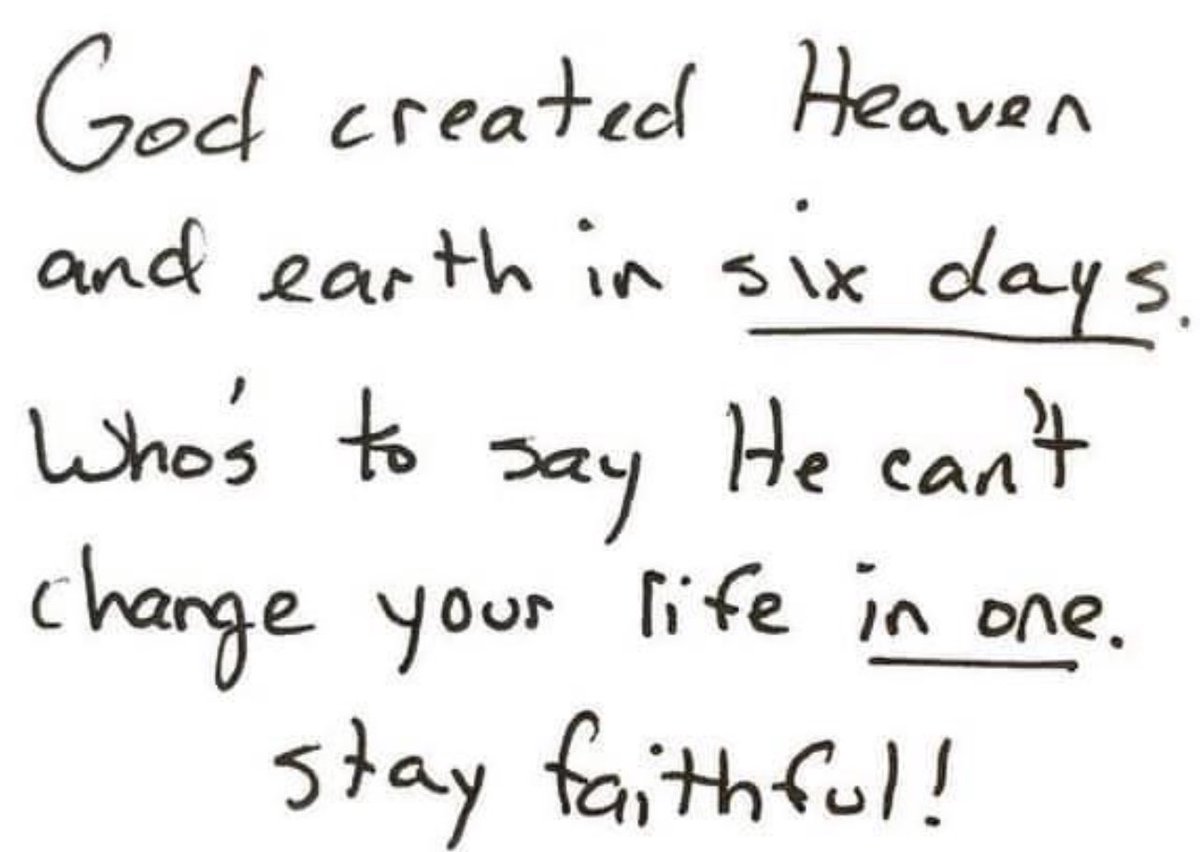 God created Heaven
and earth in six days.
Who's to say He can't
change your life in one.
stay faithful!